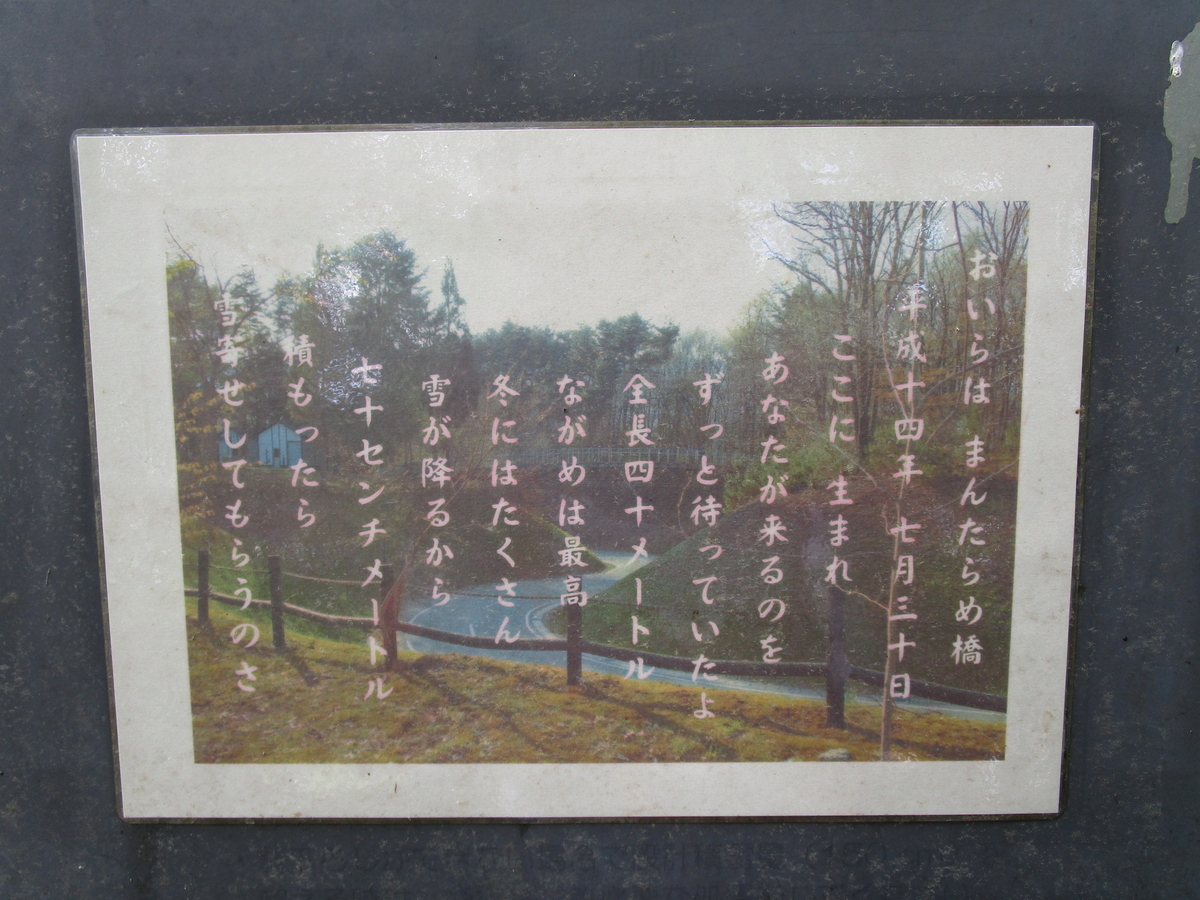 おいらは まんたらめ橋
平成十四年 七月三十日
ここに 生まれ
あなたが来るのを
ずっと待っていたよ
全長四十メートル
ながめは最高
冬にはたくさん
雪が降るから
七十センチメートル
積もったら
雪寄せしてもらうのさ